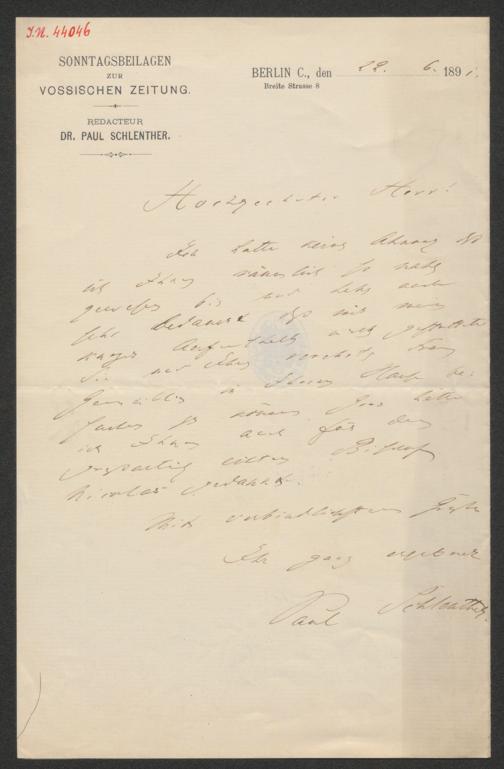 J.N. 44046
SONNTAGSBEILAGEN
ZUR
VOSSISCHEN ZEITUNG.
REDACTEUR
DR. PAUL SCHLENTHER.
BERLIN C., den 22. 6. 1891.
Breite Strasse 8
Hochgeehrter Herr!
Ich hatte keine Ahnung, daß
ich Ihnen räumlich so nahe
gewesen bin und habe auch
sehr bedauert daß mir mein
kurzer Aufenthalt nicht gestattete
Sie und Ihre verehrte Frau
Gemahlin in Ihrem
zu können. Gern hätte
ich Ihnen auch für den
Bischof
Nicolas gedankt.
Mit verbindlichstem Gruße
Ihr ganz ergebener
Paul Schlenther.